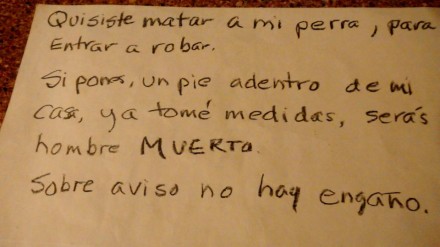 Quisiste matar a mi perra, para
Entrar a robar.
Si pones, un pie adentro de mi
casa, ya tomé medidas, serás
hombre MUERTO.
Sobre aviso no hay engaño.